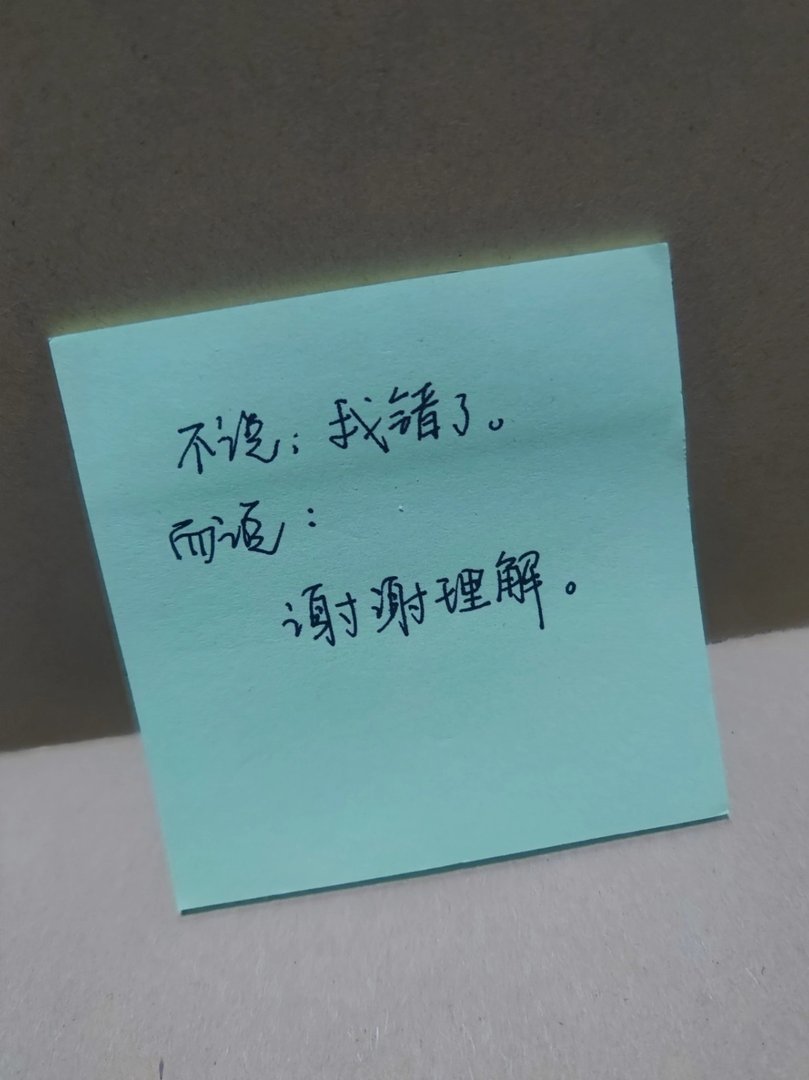 不说：我错了。
而说：
谢谢理解。